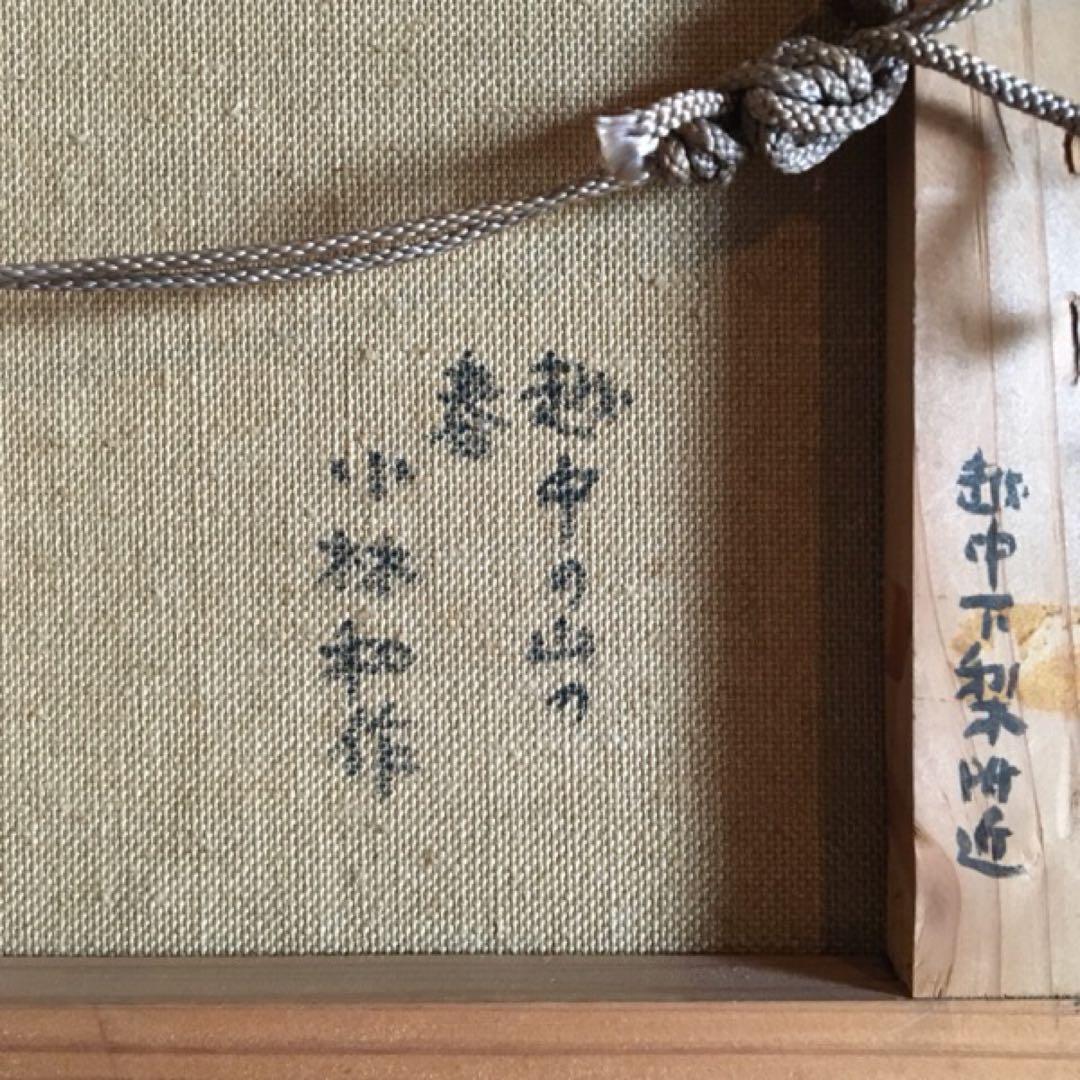 越中下梨附近
越中の山の
春
小林和作